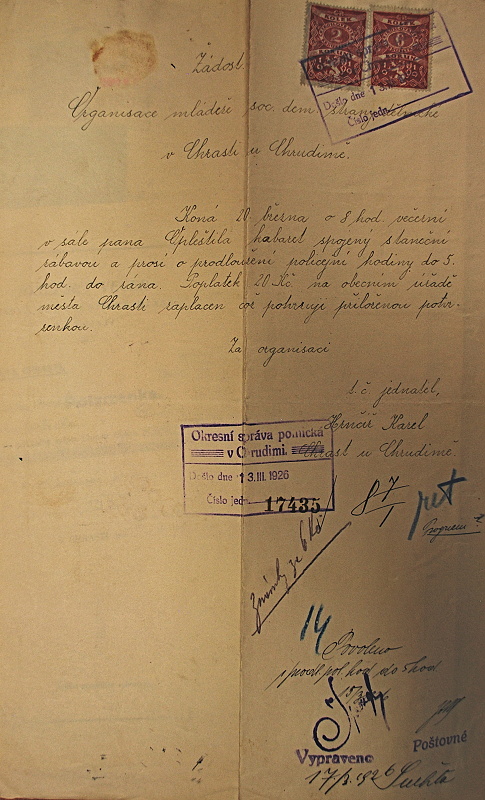 KOLEK
KOLEK
2
6
KORUNY
KORUN
Došlo dne 13
Číslo jedn.
Žádost.
Organisace mládeže soc. dem. strany dělnické
v Chrasti u Chrudimě.
Koná 20 března o 8 hod. večerní
v sále pana Opleštila kabaret spojený s taneční
zábavou a prosí o prodloužení policejní hodiny do 5.
hod. do rána. Poplatek 20 Kč. na obecním úřadě
města Chrasti zaplacen což potvrzuji přiloženou potvr-
zenkou.
Za organisaci
t. č. jednatel,
Hrnčíř Karel
Chrast u Chrudimě.
Okresní správa politická
v Chrudimi.
Došlo dne 13. III. 1926
Číslo jedn. 17435
8 7/1
Program
Známky ze 6 Kč
14
Povoleno
prodl. pol. hod do 5 hod
Vypraveno
Poštovné
17/3 1926